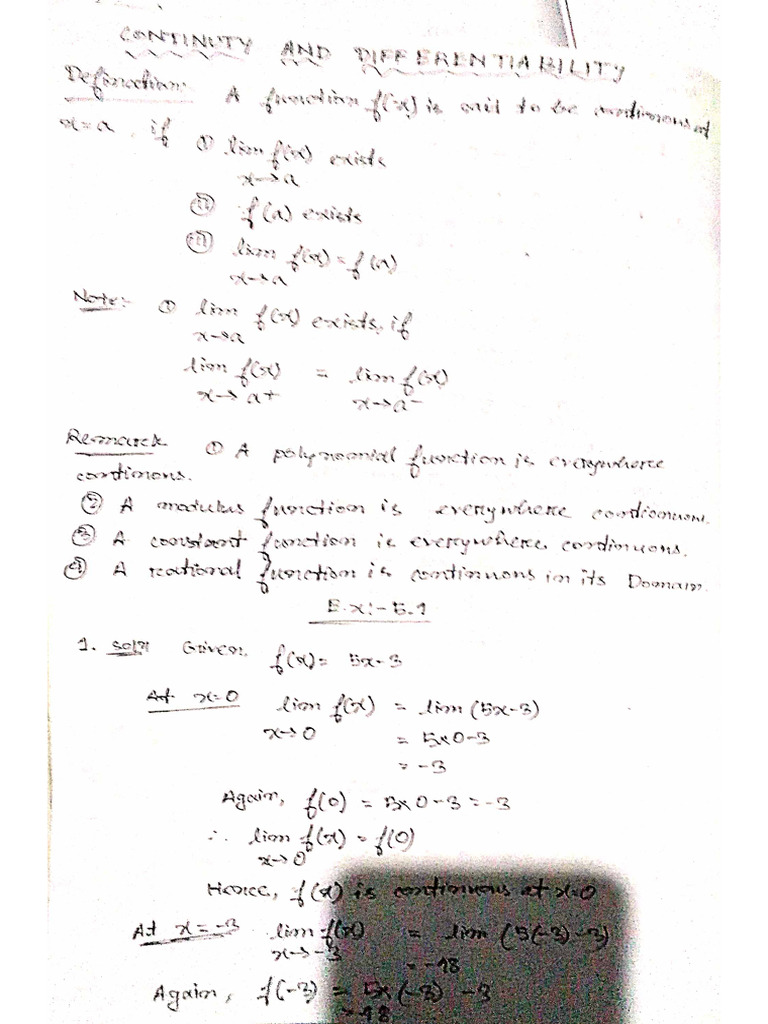 CONTINUTY AND DIFFERENTIABILITY
Defination: A function f(x) is said to be continuous at
x=a, if ① lim f(x) exists
x→a
⑪ f(a) exists
⑪ lim f(x) = f(a)
x→a
Note:- ① lim f(x) exists, if
x→a
lim f(x) = lim f(x)
x→a+ x→a-
Remark ① A polynomial function is everywhere
continous.
② A modulus function is everywhere continuous.
③ A constant function is everywhere continuous.
④ A rational function is continuous in its Domain.
Ex:- 5.1
1. Soln Given, f(x) = 5x-3
At x=0 lim f(x) = lim (5x-3)
x→0 = 5x0-3
= -3
Again, f(0) = 5x0-3 = -3
∴ lim f(x) = f(0)
x→0
Hence, f(x) is continuous at x=0
At x=-3 lim f(x) = lim (5(-3)-3)
x→-3 = -18
Again, f(-3) = 5x(-3) -3
= -18